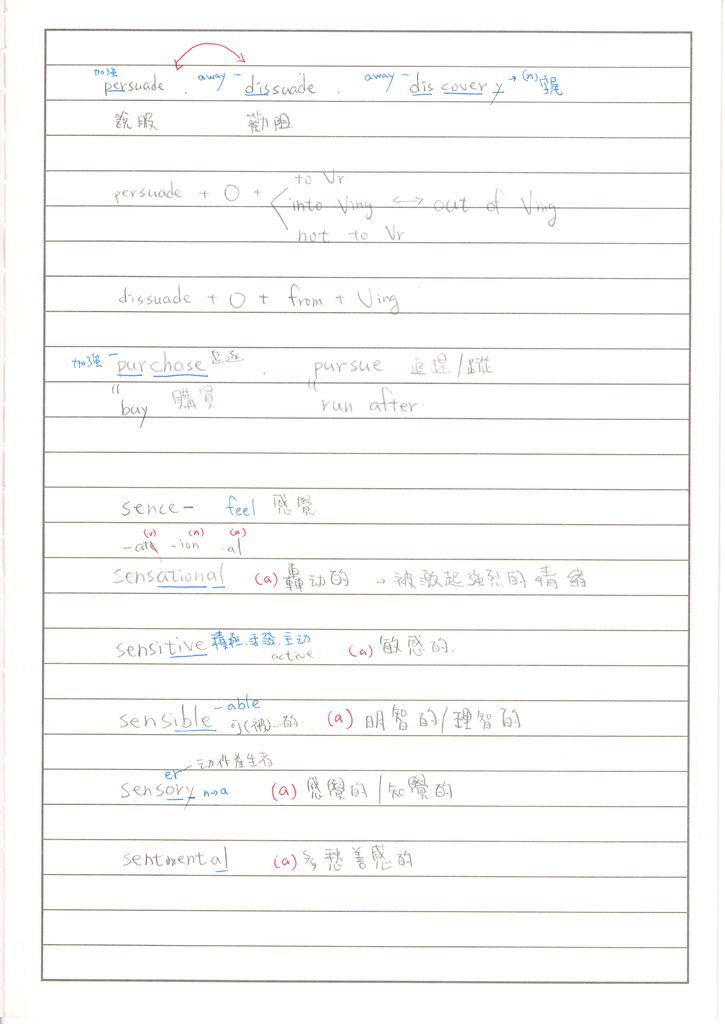 加強 persuade . away - dissuade . away - discovery → (n) 字尾
說服 勸阻
to Vr
persuade + O + into Ving ↔ out of Ving
not to Vr
dissuade + O + from + Ving
加強 - purchase 追逐 . pursue 追捉/蹤
" buy 購買 " run after.
sence - feel 感覺
(v) (n) (a)
-ate -ion -al
sensational (a) 轟动的 → 被激起強烈的情緒
sensitive 積極.主动
active (a) 敏感的.
- able
sensible 可(被)...的 (a) 明智的/理智的
er 动作產生者
sensory n→a (a) 感覺的/知覺的
sentmental (a) 多愁善感的